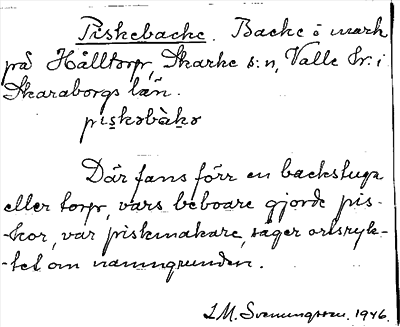 Piskebacke. Backe o mark
på Hålltorp, Skarke s:n, Valle hr: i
Skaraborgs län.
piskəbàkə
Där fans förr en backstuga
eller torp, vars beboare gjorde pis-
-kor, var piskmakare, säger ortsryk-
-tet om namngrunden.
I.M. Svenungsson. 1946.